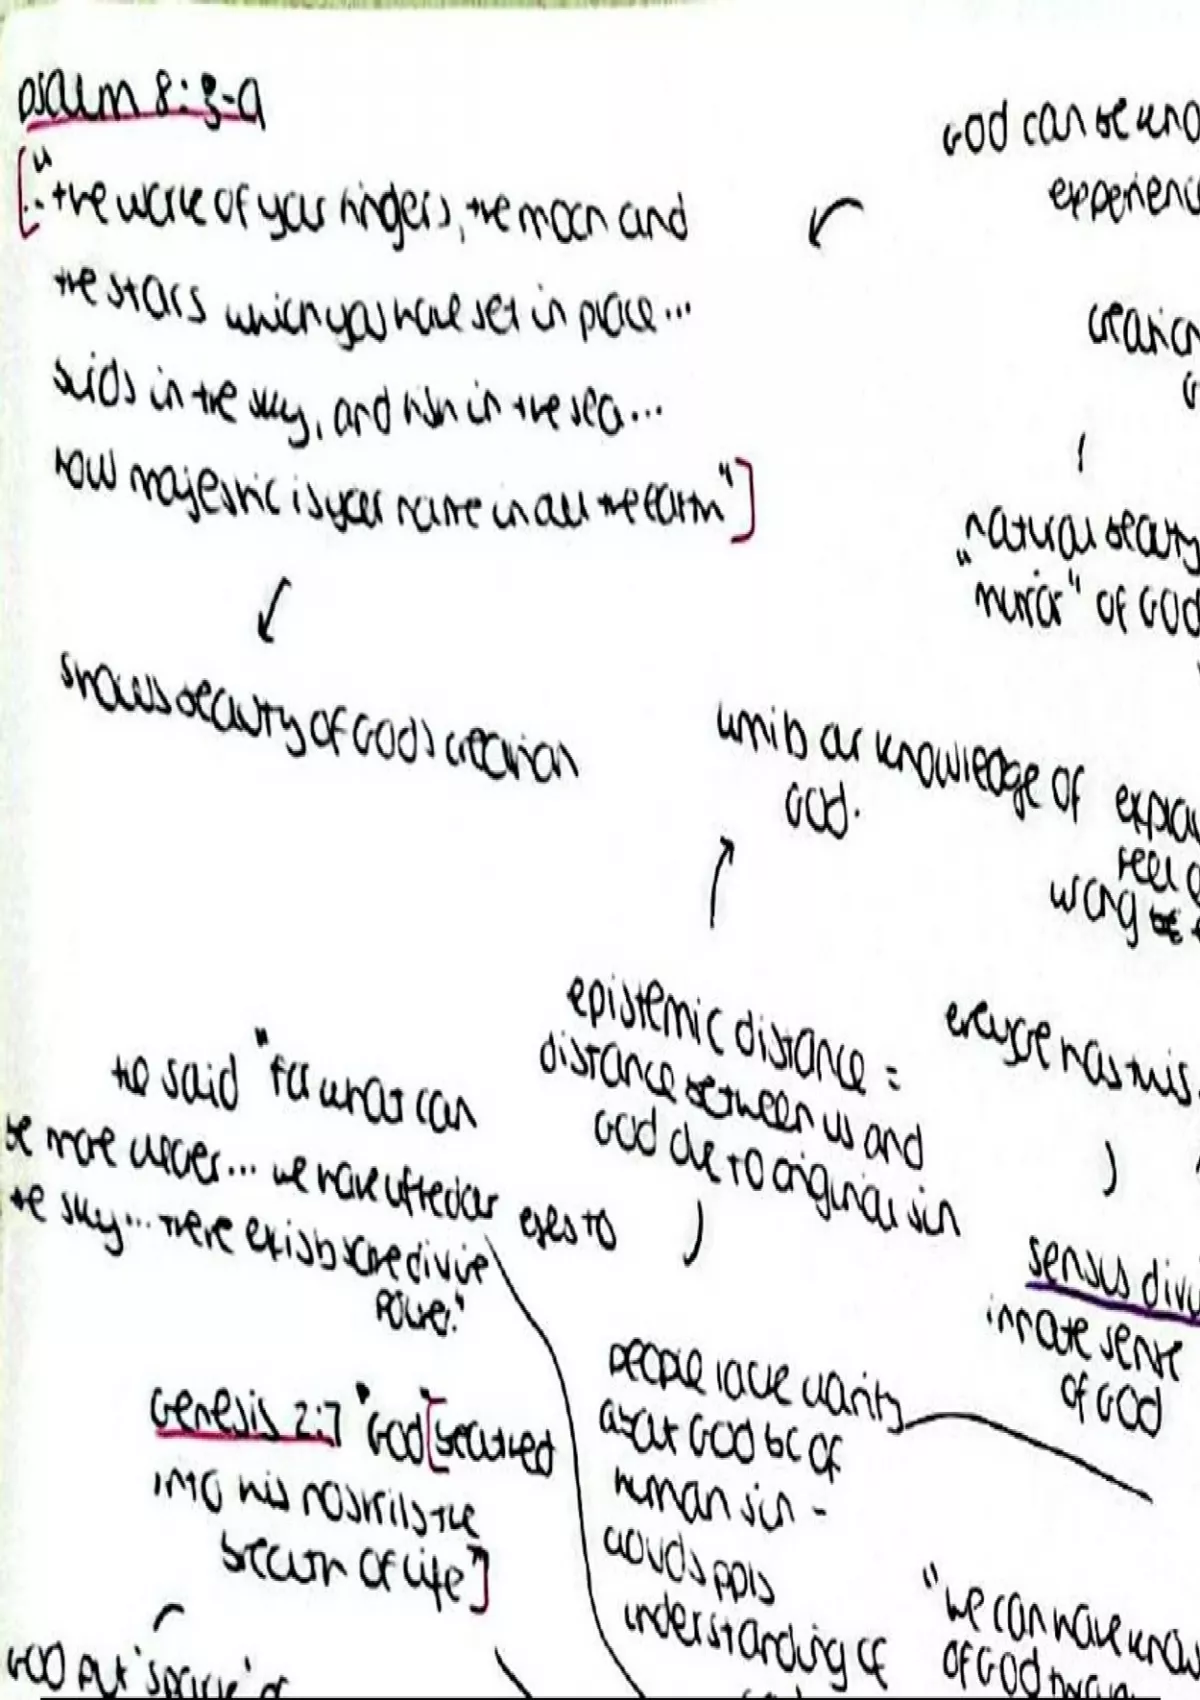 psalm 8:3-9
["...the work of your fingers, the moon and
the stars which you have set in place...
birds in the sky, and fish in the sea...
how majestic is your name in all the earth"]
shows beauty of God's creation
God can be kno
experienc
creation
G
natural beauty
"mirror" of God
limits our knowledge of
God.
explai
feel g
wrong
epistemic distance =
distance between us and
God due to original sin
everyone has this
he said "for what can
be more clear... we have lifted our eyes to
the sky... there exists some divine
power."
sensus divi
innate sense
of God
people lack clarity
about God bc of
human sin -
clouds ppls
understanding of
Genesis 2:7 "God [breathed
into his nostrils the
breath of life"]
God put 'sparke' of
"we can have know
of God